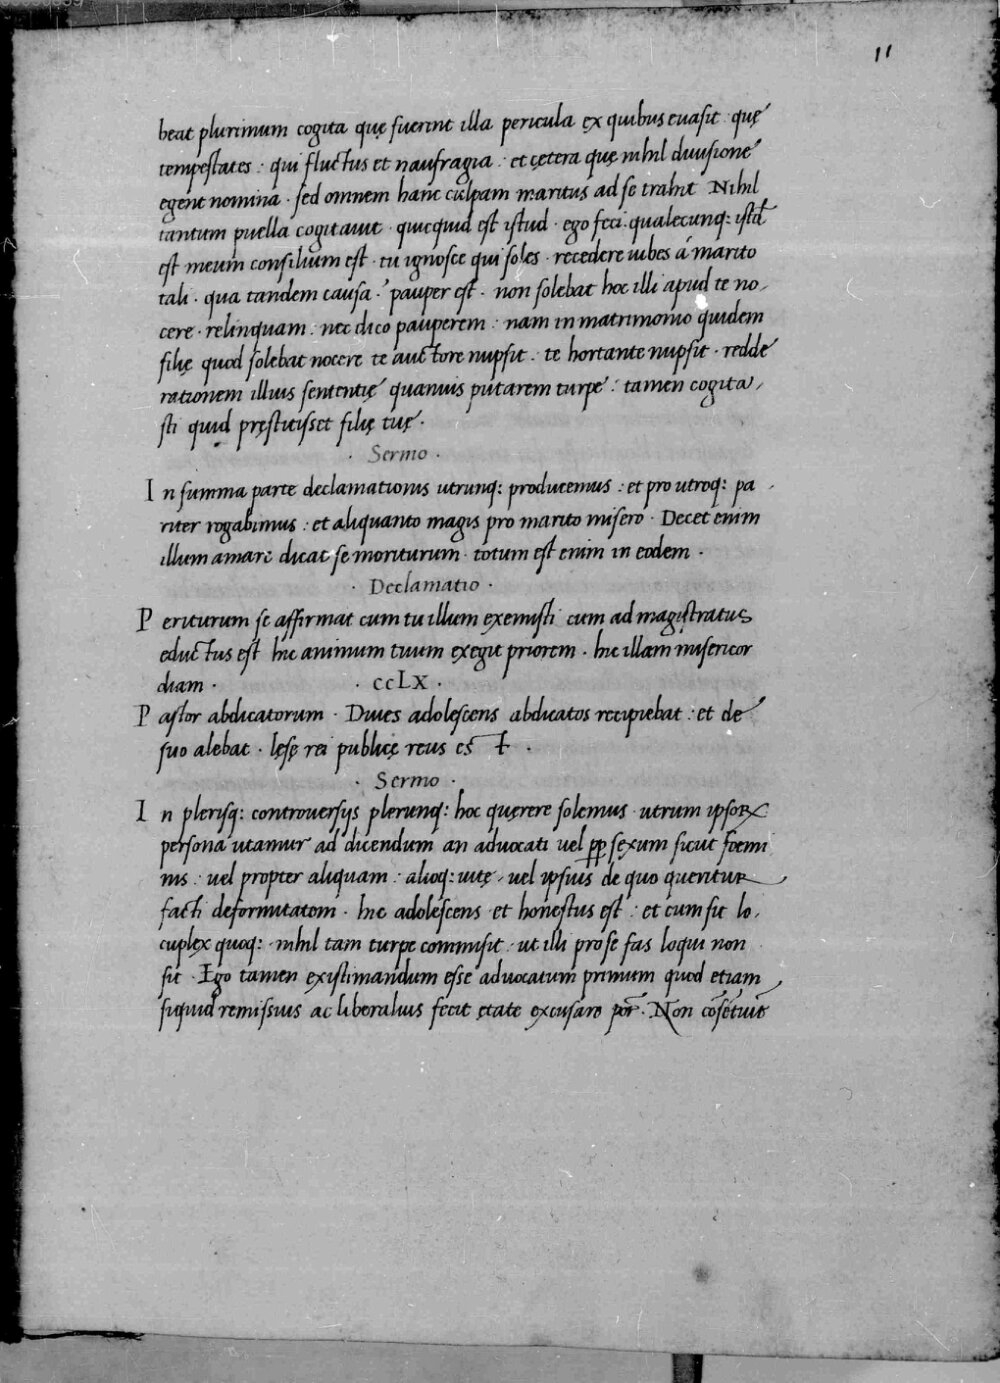 11
beat plurimum cogita quę fuerint illa pericula ex quibus evasit quę
tempestates : qui fluctus et naufragia : et cetera quę nihil divisione
egent nomina · sed omnem hanc culpam maritus ad se trahit Nihil
tantum puella cogitavit · quicquid est istud · ego feci · qualecunq: istd̄
est meum consilium est · tu ignosce qui soles · recedere iubes á marito
tali · qua tandem causa · pauper est · non solebat hoc illi apud te no-
cere · relinquam : nec dico pauperem : nam in matrimonio quidem
filię quod solebat nocere te auctore nupsit : te hortante nupsit · redde
rationem illius sententię quamvis putarem turpe : tamen cogita-
sti quid pręstitisset filię tuę ·
· Sermo ·
In summa parte declamationis utrunq: producemus : et pro utroq: pa-
riter rogabimus : et aliquanto magis pro marito misero · Decet enim
illum amare dicat se moriturum · totum est enim in eodem ·
· Declamatio ·
Periturum se affirmat cum tu illum exemisti cum ad magistratus
eductus est hic animum tuum exegit priorem · hic illam misericor
diam · · ccLX ·
Pastor abdicatorum · Dives adolescens abdicatos recipiebat : et de
suo alebat · lęsę rei publicę reus est ·
· Sermo ·
In plerisq: controversijs plerunq: hoc querere solemus · utrum ipsoꝝ
persona utamur ad dicendum an advocati vel ꝓꝑ sexum sicut foemi
nis : vel propter aliquam : alioq: vitę · vel ipsius de quo queritur
facti deformitatem · hic adolescens et honestus est : et cum sit lo-
cuplex quoq: · nihil tam turpe commisit · ut illi pro se fas loqui non
sit · Ego tamen existimandum esse advocatum primum quod etiam
siquid remissius ac liberalius fecit ętate excusare